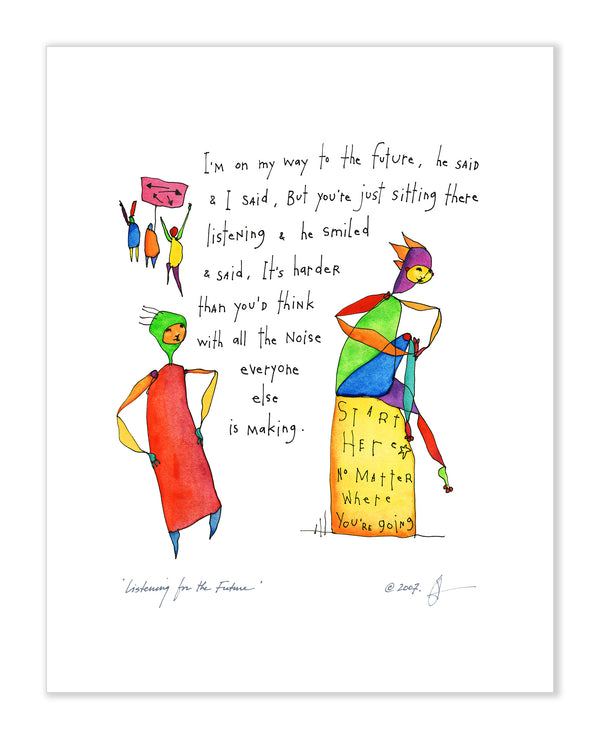 I'm on my way to the future, he said
& I said, But you're just sitting there
listening & he smiled
& said, It's harder
than you'd think
with all the noise
everyone
else
is making.
Start
Here
No Matter
Where
You're going
'Listening for the Future'
© 2007.